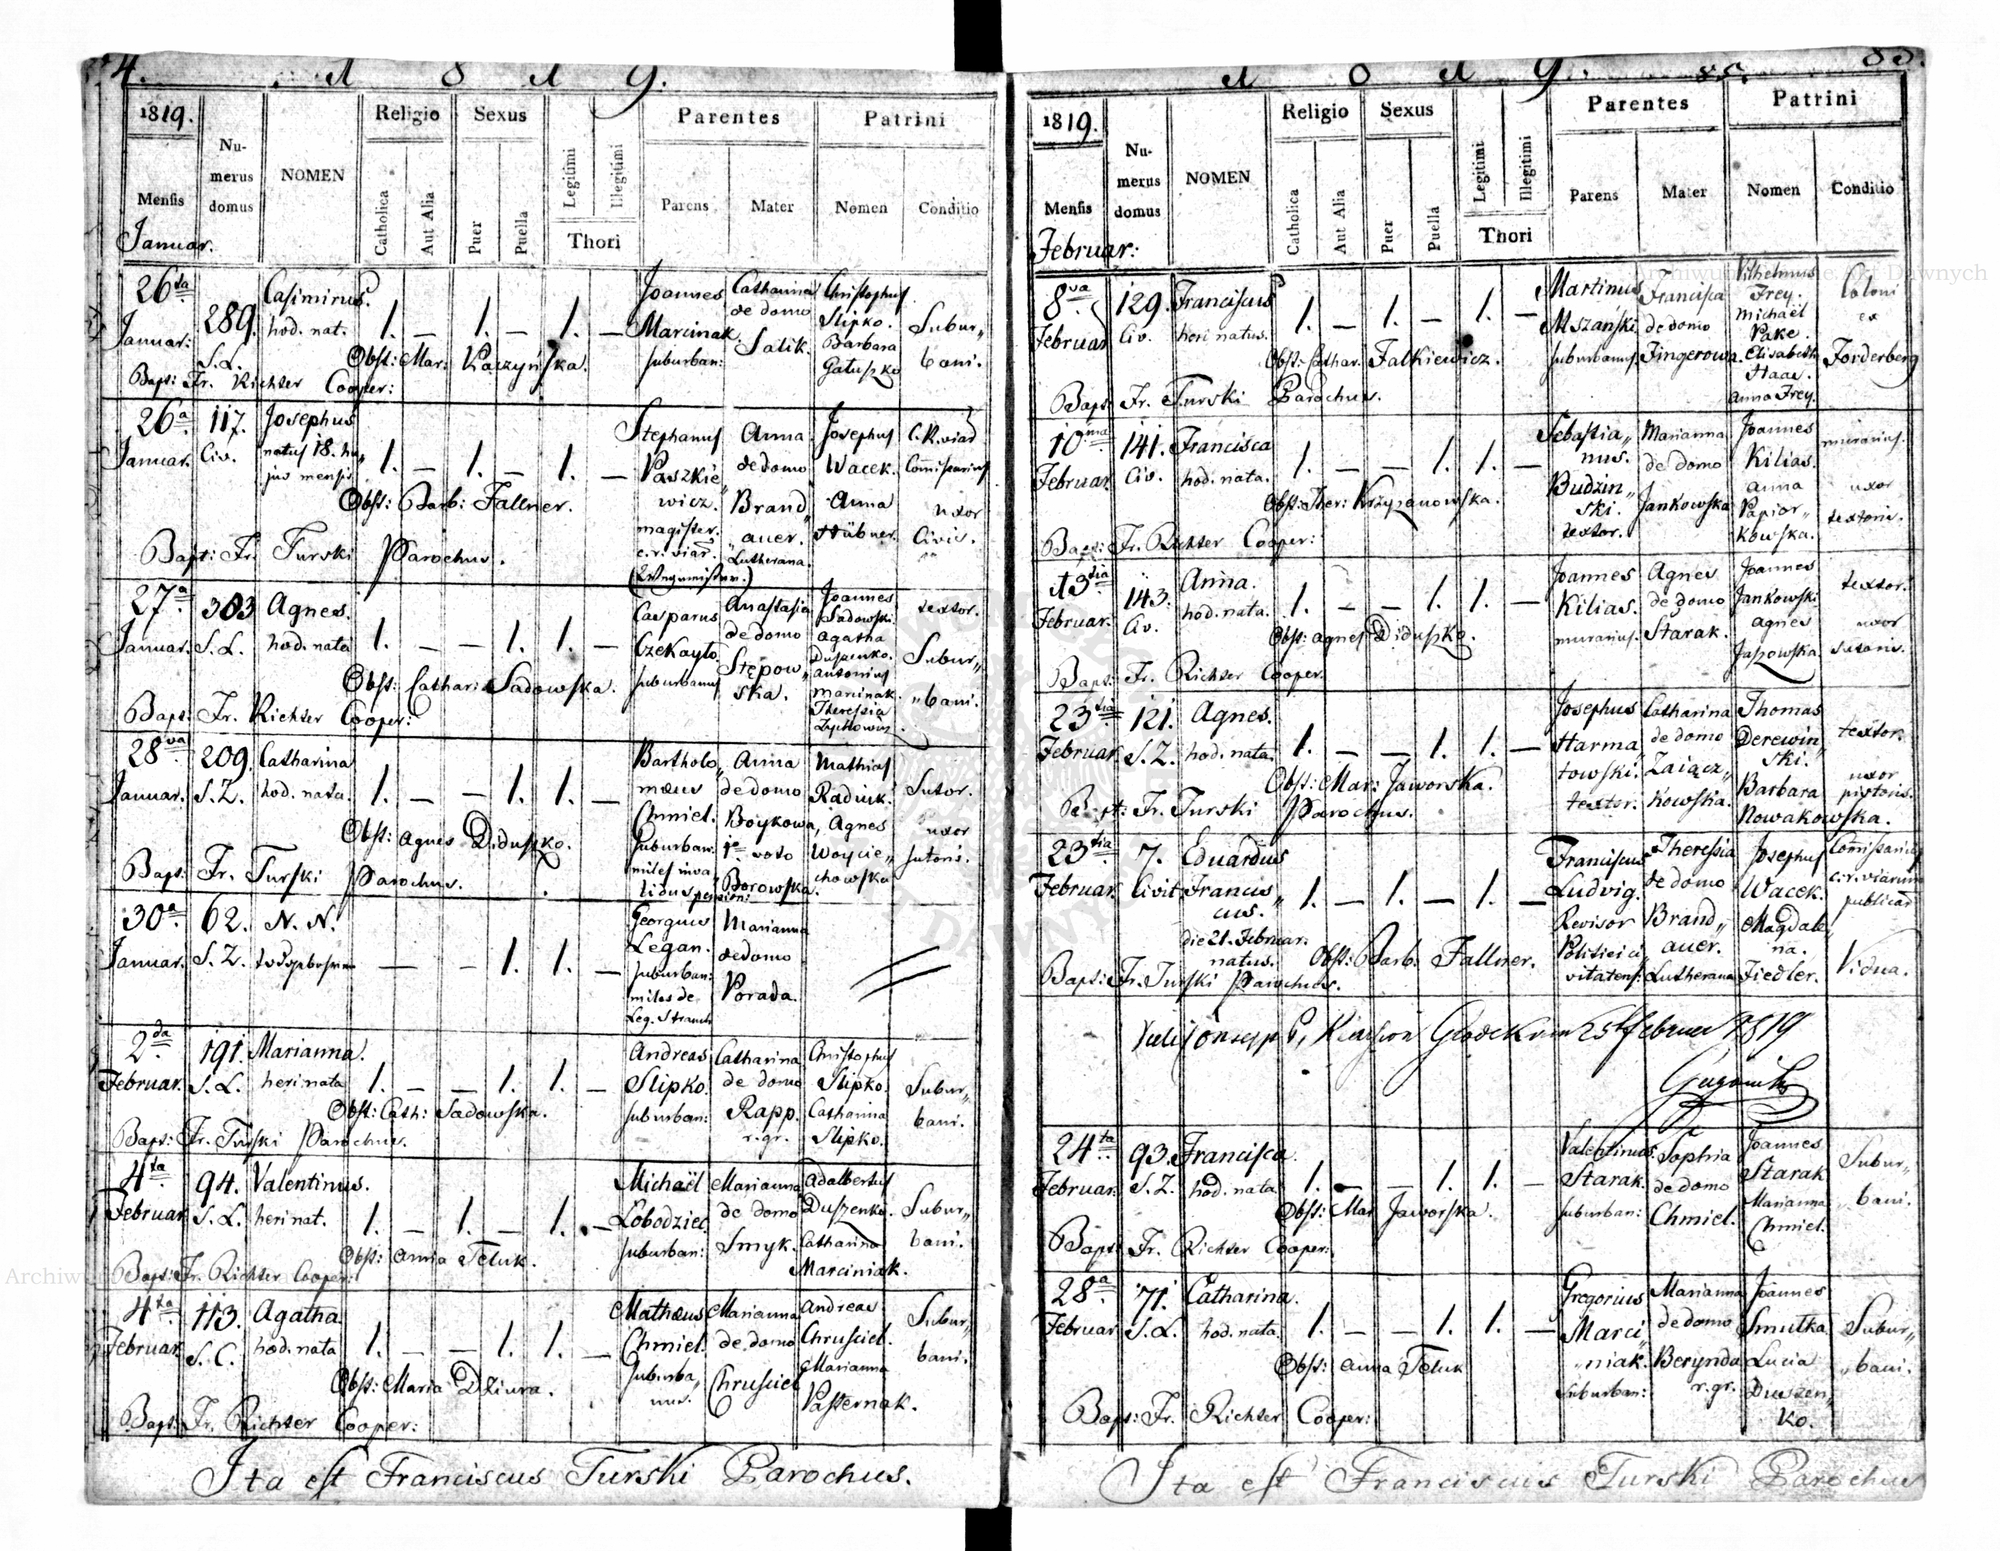 4. 1 8 1 9.
1819.
Mensis
Januar.
Numerus domus
NOMEN
Religio
Catholica
Aut Alia
Sexus
Puer
Puella
Legitimi
Illegitimi
Thori
Parentes
Parens
Mater
Patrini
Nomen
Conditio
26ta Januar: 289. S.L.
Casimirus. hod. nat.
1. — 1. — 1. —
Joannes Marcinak suburban:
Catharina de domo Salik.
Christophus Slipko. Barbara Gatuszko
Subur„ bani.
Obst: Mar: Kaczyńska.
Bapt: Fr. Richter Cooper:
26a Januar. 117. Civ.
Josephus natus 18. hu„ jus mensis
1. — 1. — 1. —
Stephanus Paszkie„ wicz. magister. c. r. viar. (Wegmeister.)
Anna de domo Brand„ auer. Lutherana.
Josephus Wacek. Anna Hübner
C. R. viar. Commissarius uxor Civis.
Obst: Barb: Fallner.
Bapt: Fr. Turski Parochus.
27a Januar. 303 S.L.
Agnes. hod. nata
1. — — 1. 1. —
Casparus Czekayło suburbanus
Anastasia de domo Stępow„ ska.
Joannes Sadowski. Agatha Duszenko. Antonius Marcinak. Theressia
textor. Subur„ „bani.
Obst: Cathari: Sadowska.
Bapt: Fr. Richter Cooper:
28va Januar. 209. S.Z.
Catharina hod. nata.
1. — — 1. 1. —
Bartholo„ mæus Chmiel. Suburban: miles inva„ lidus pension:
Anna de domo Boykowa, 1o voto Borowska.
Mathias Radiuk. Agnes Woycie„ chowska
Sutor. uxor sutoris.
Obst: Agnes Diduszko.
Bapt: Fr. Turski Parochus.
30a Januar. 62. S.Z.
N. N.
— — 1. 1. —
Georgius Legan. suburban: miles de Leg. Strauch
Marianna de domo Porada.
2da Februar. 191. S.L.
Marianna. heri nata
1. — — 1. 1. —
Andreas Slipko. suburban:
Catharina de domo Rapp. r. gr.
Christophus Slipko. Catharina Slipko.
Subur„ bani.
Obst: Cath: Sadowska.
Bapt: Fr. Turski Parochus.
4ta Februar. 94. S.L.
Valentinus. heri nat.
1. — 1. — 1. —
Michaël Lobodziec. suburban:
Marianna de domo Smyk.
Adalbertus Duszenko. Catharina Marciniak.
Subur„ bani.
Obst: Anna Teluk.
Bapt: Fr. Richter Cooper:
4ta Februar. 113. S.C.
Agatha hod. nata
1. — — 1. 1. —
Mathæus Chmiel. suburba„ nus.
Marianna de domo Chrusciel
Andreas Chrusciel. Marianna Pasternak.
Subur„ bani.
Obst: Maria Dziura.
Bapt: Fr. Richter Cooper:
Ita est Franciscus Turski Parochus.
1819.
Mensis
Februar:
Numerus domus
NOMEN
Religio
Catholica
Aut Alia
Sexus
Puer
Puella
Legitimi
Illegitimi
Thori
Parentes
Parens
Mater
Patrini
Nomen
Conditio
8va Februar 129. Civ.
Franciscus heri natus.
1. — 1. — 1. —
Martinus Mszański suburbanus
Francisca de domo Fingerowa.
Vilhelmus Frey. Michael Pake. Elisabeth Haas. Anna Frey.
Coloni ex Forderberg
Obst: Cathar. Falkiewicz.
Bapt: Fr. Turski Parochus.
10ma Februar. 141. Civ.
Francisca hod. nata.
1. — — 1. 1. —
Sebastia„ nus. Budzin„ ski. textor.
Marianna de domo Jankowska
Joannes Kilias. Anna Papior„ kowska.
murarius. uxor textoris.
Obst: Ther: Krzyzanowska.
Bapt: Fr. Richter Cooper:
13tia Februar. 143. Civ.
Anna. hod. nata.
1. — — 1. 1. —
Joannes Kilias. murarius.
Agnes de domo Starak.
Joannes Jankowski Agnes Jaszowska.
textor. uxor sutoris.
Obst: Agnes Diduszko.
Bapt: Fr. Richter Cooper
23tia Februar. 121. S.Z.
Agnes. hod. nata.
1. — — 1. 1. —
Josephus Harma„ towski. textor.
Catharina de domo Zaiącz„ kowska.
Thomas Derewin„ ski. Barbara Nowakowska.
textor. uxor pistoris.
Obst: Mar: Jaworska.
Bapt: Fr. Turski Parochus.
23tia Februar. 7. Civit.
Eduardus Francis„ cus. die 21. Februar. natus.
1. — 1. — 1. —
Franciscus Ludvig. Revisor
Theressia de domo Brand„ auer. Lutherana
Josephus Wacek. Magdale„ na. Fiedler.
Commissarius c. r. viarum publicar. Vidua.
Obst: Barb: Fallner.
Bapt: Fr. Turski Parochus.
1819
24ta Februar. 93. S.Z.
Francisca. hod. nata
1. — — 1. 1. —
Valentinus Starak. suburban:
Sophia de domo Chmiel.
Joannes Starak Marianna Chmiel.
Subur„ bani.
Obst: Mar Jaworska.
Bapt: Fr. Richter Cooper:
28a Februar 71. S.L.
Catharina. hod. nata.
1. — — 1. 1. —
Gregorius Marci„ „niak. suburban:
Marianna de domo Berynda r. gr.
Joannes Smutka Lucia Duszen„ ko.
Subur„ „bani.
Obst: Anna Teluk
Bapt: Fr. Richter Cooper:
Ita est Franciscus Turski Parochus